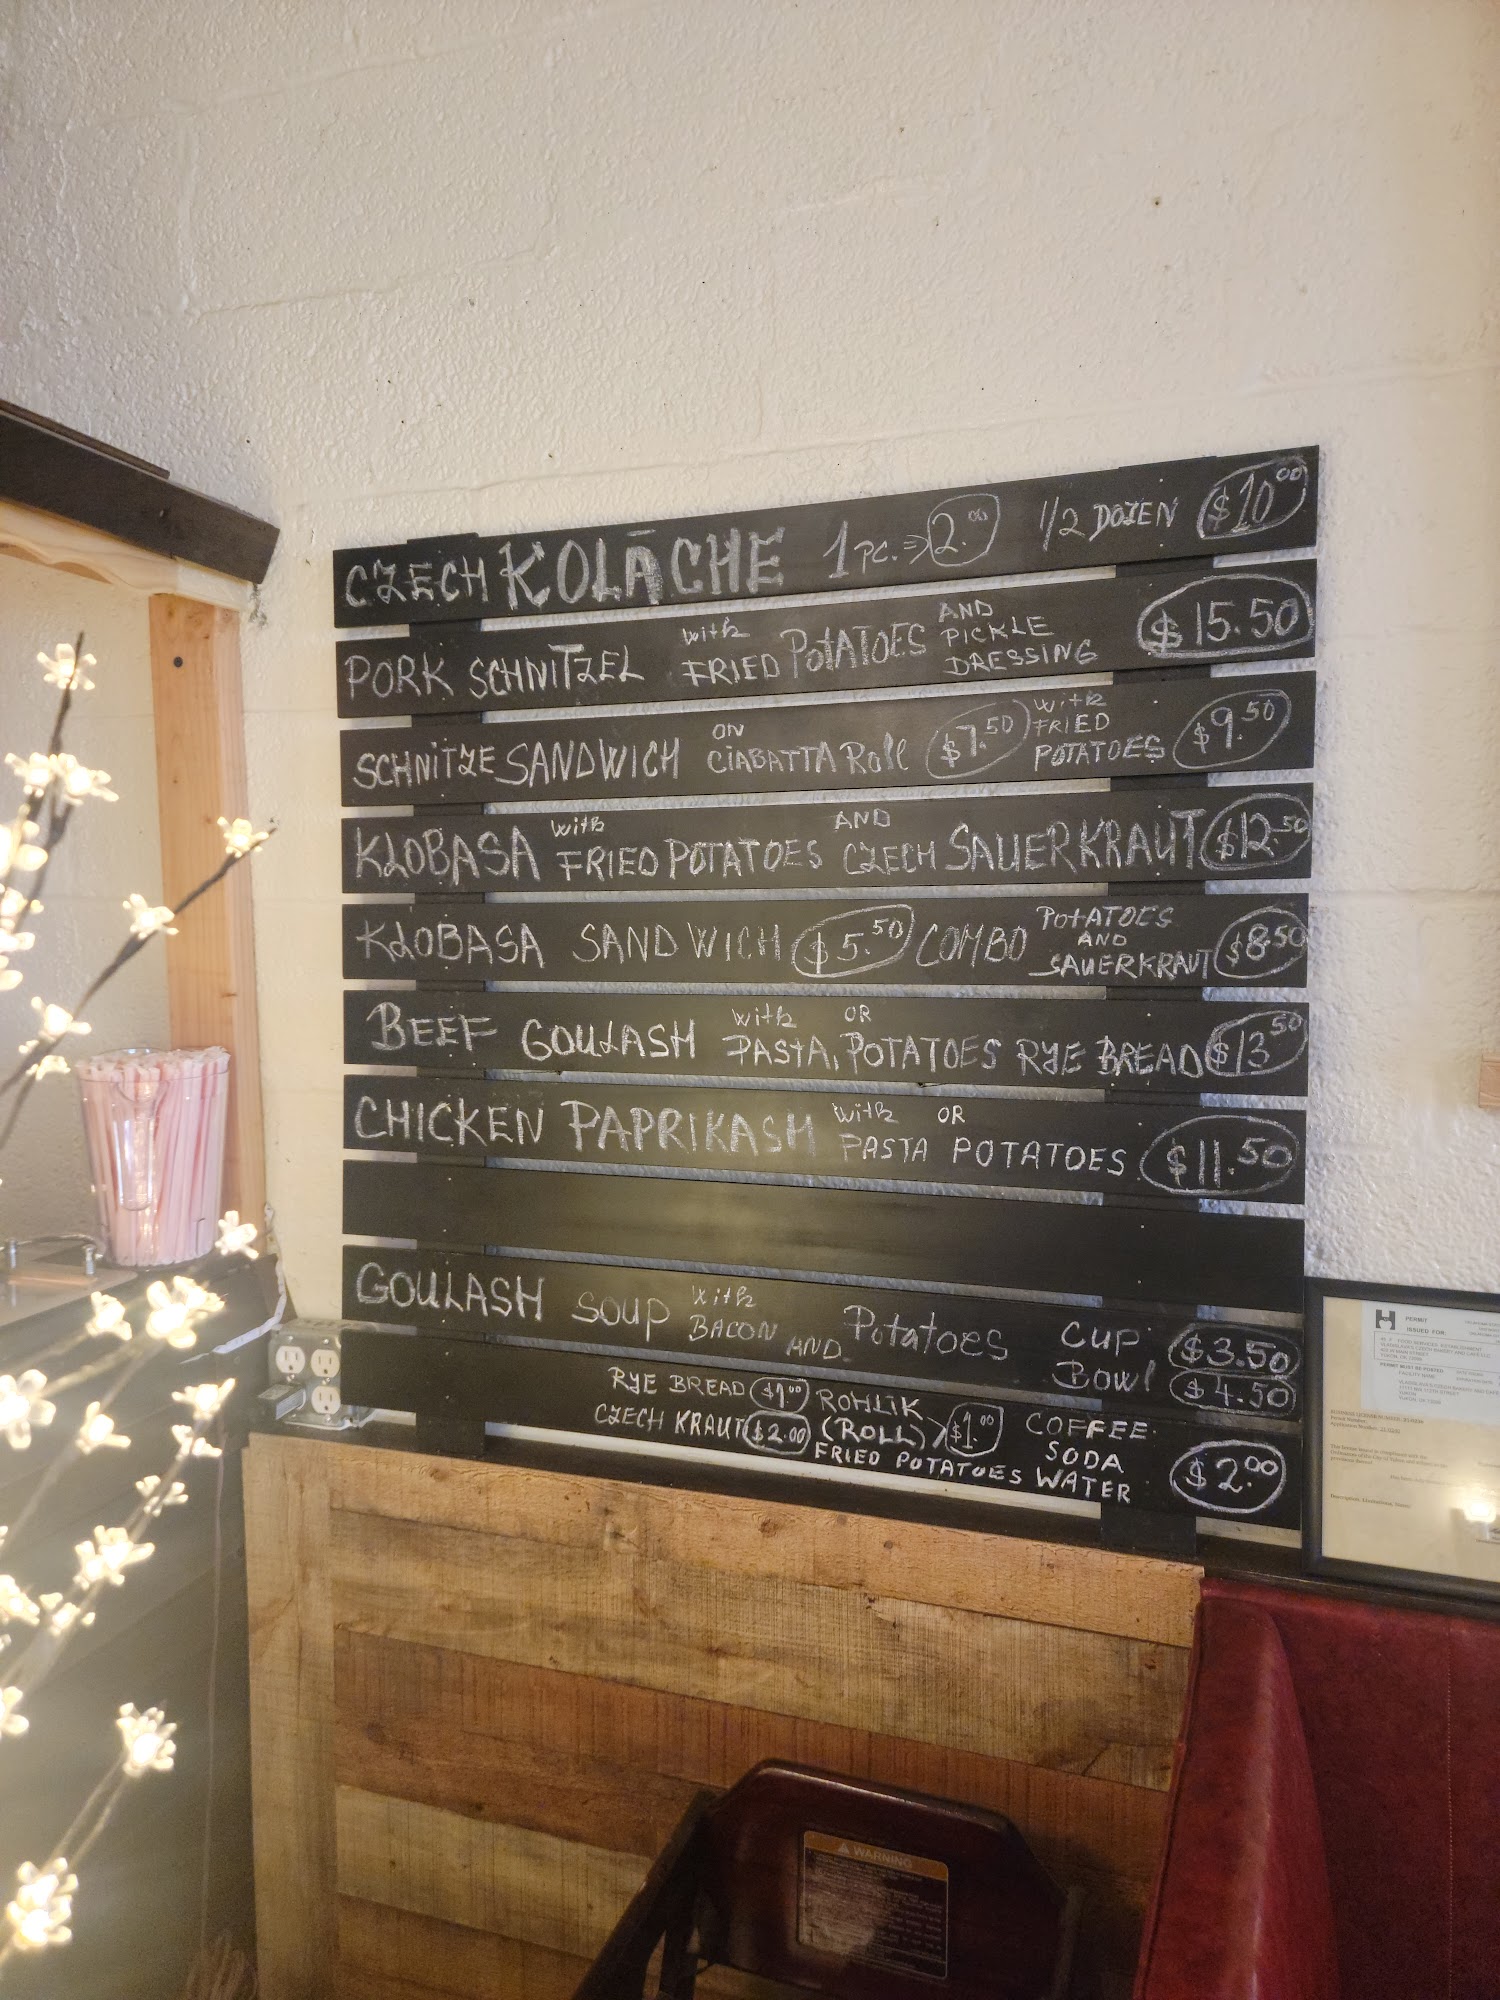 CZECH KOLĀCHE 1 PC. ⇒ 2.00 1/2 DOZEN $10.00
PORK SCHNITZEL with FRIED POTATOES AND PICKLE DRESSING $15.50
SCHNITZE SANDWICH ON CIABATTA Roll $7.50 with FRIED POTATOES $9.50
KLOBASA with FRIED POTATOES AND CZECH SAUERKRAUT $12.50
KLOBASA SANDWICH $5.50 COMBO POTATOES AND SAUERKRAUT $8.50
BEEF GOULASH with PASTA, OR POTATOES RYE BREAD $13.50
CHICKEN PAPRIKASH with PASTA OR POTATOES $11.50
GOULASH SOUP with BACON AND Potatoes CUP $3.50
Bowl $4.50
RYE BREAD $1.00 ROHLIK
CZECH KRAUT $2.00 (ROLL) $1.00
FRIED POTATOES
COFFEE
SODA
WATER
$2.00
PERMIT
ISSUED FOR:
WARNING